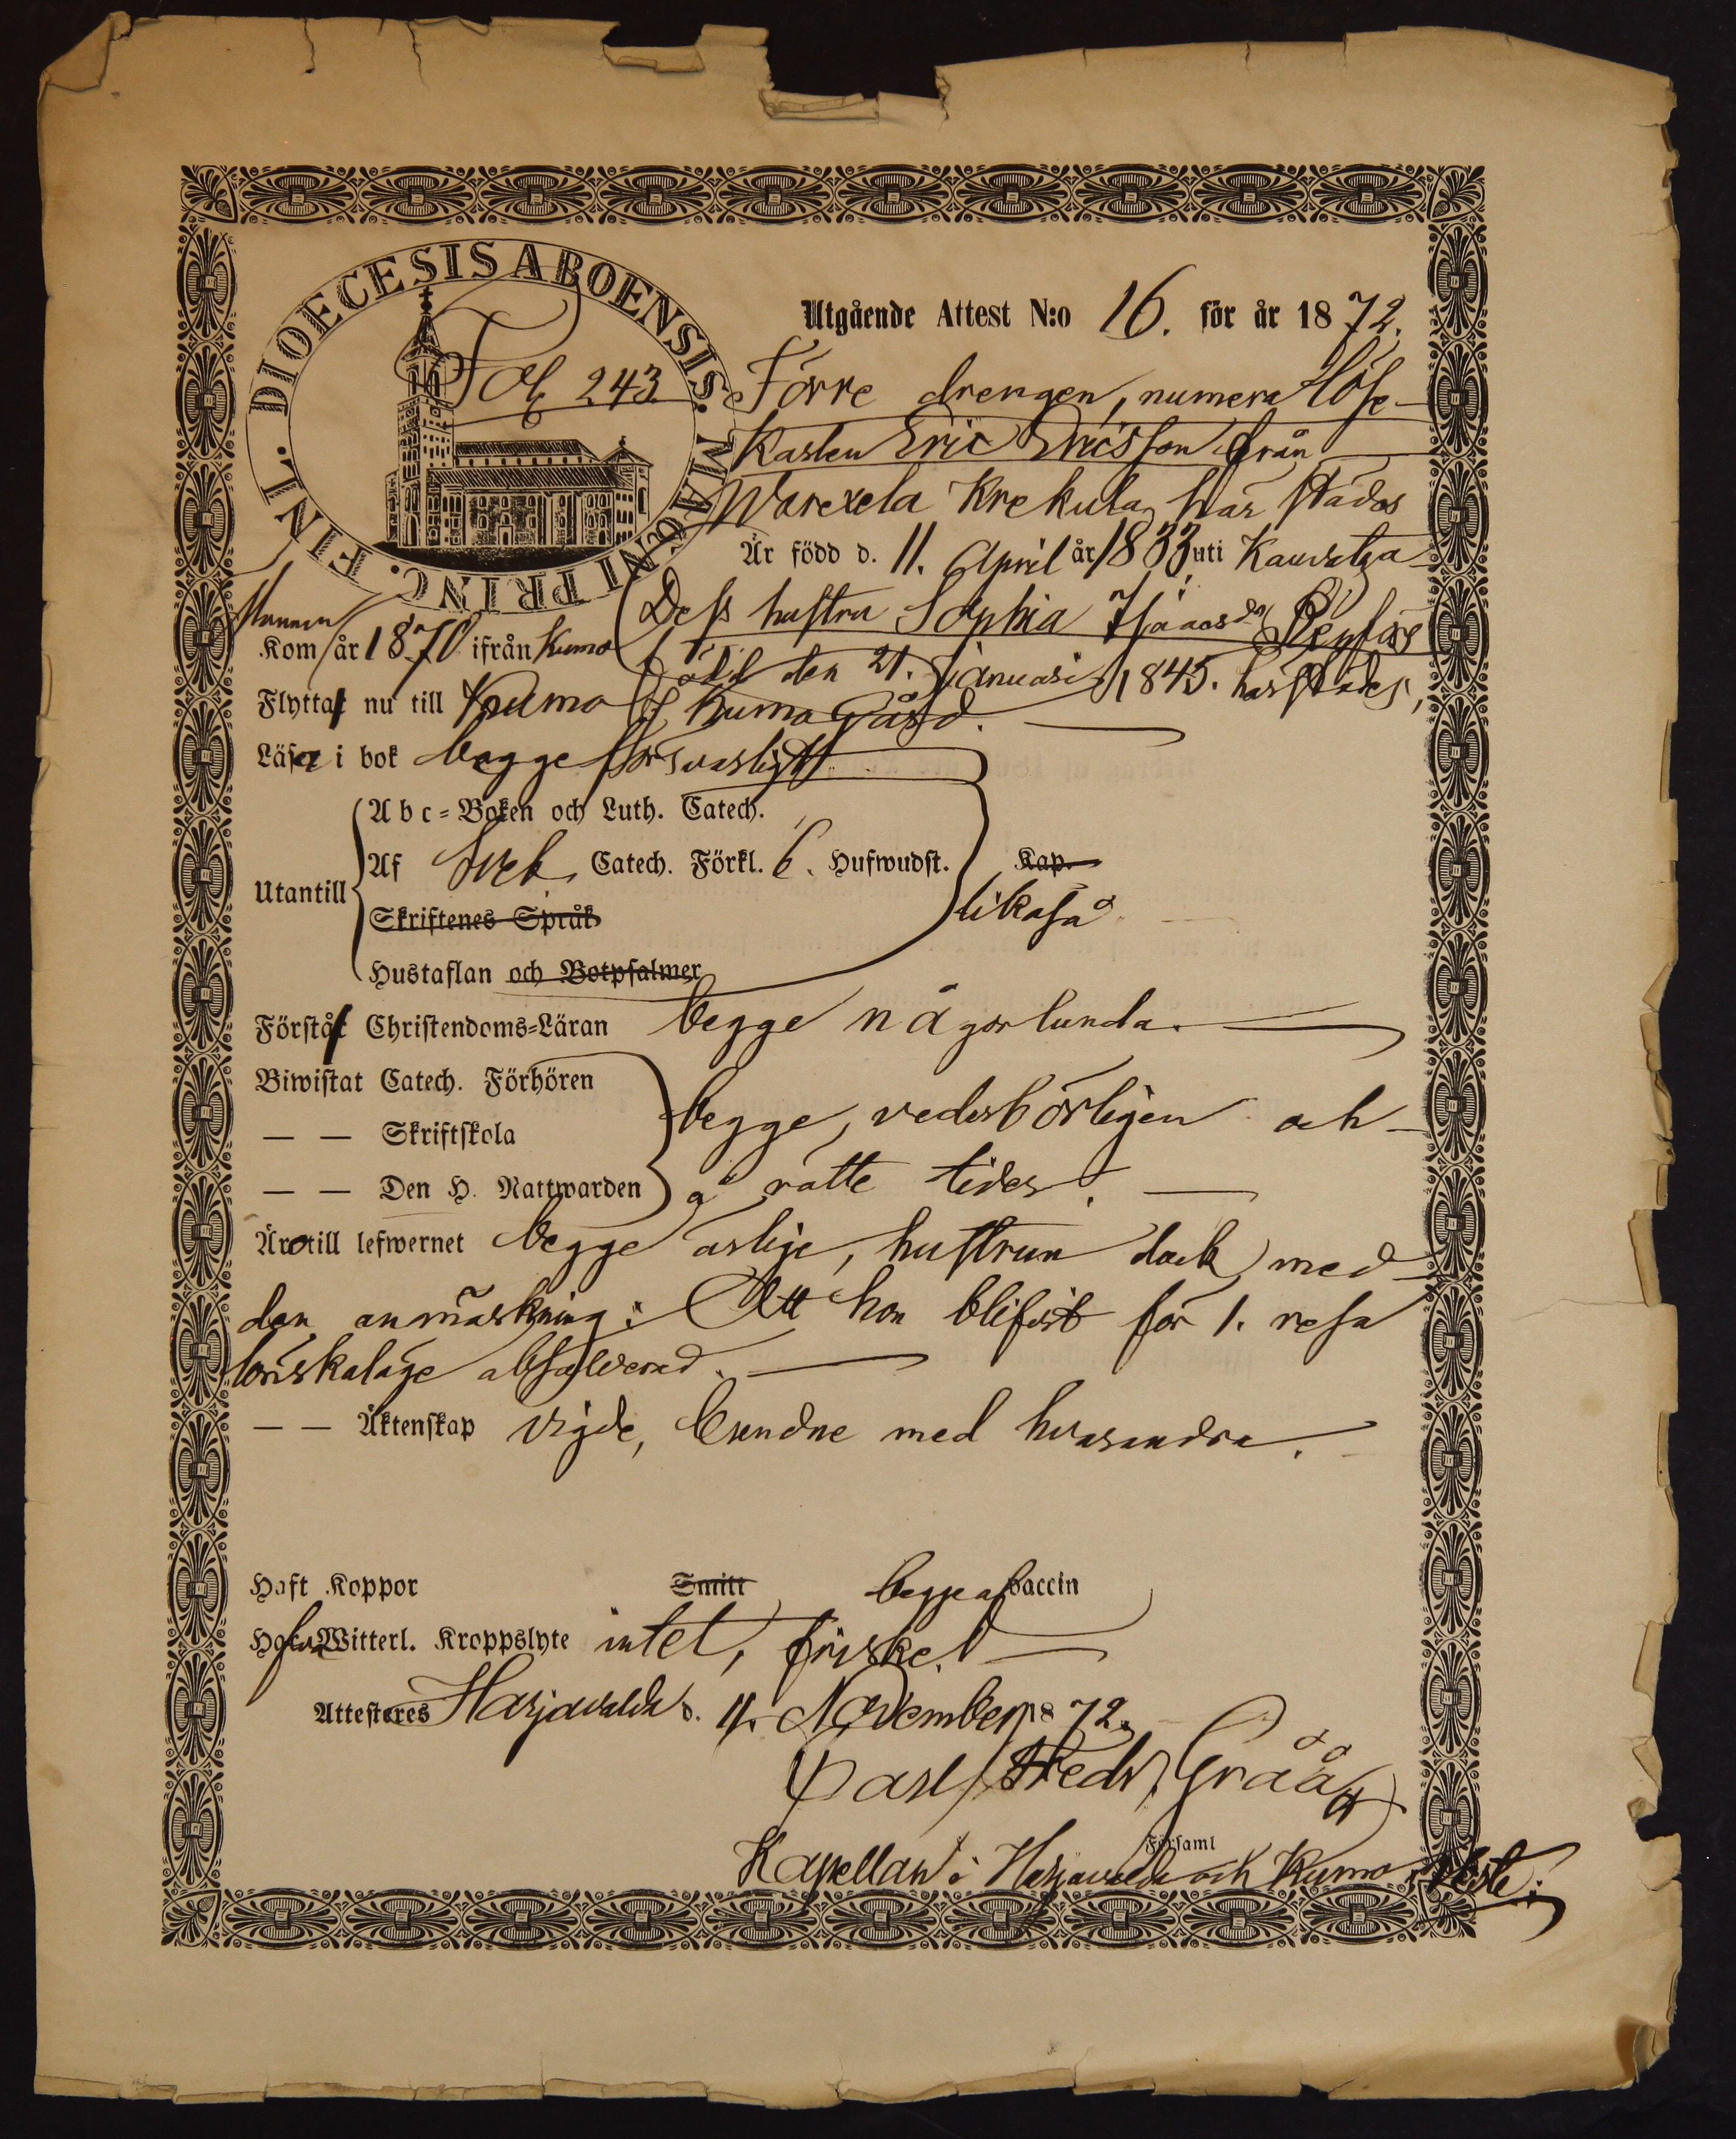 DIOECESIS ABOENSIS. MAGNI PRINC. FINL.
Fol 243
Utgående Attest N:o 16. för år 1872.
Förre drengen, numera Löse-
karlen Eric Ericsson från
Krekula, härstädes
Är född d. 11. April år 1833 uti Kauvatza
Dess hustru Sophia
Mannen
Kom år 1870 ifrån Kumo
född den 21. Januari 1845. härstädes,
Flytta nu till Kumo Kumo Gård.
Läsa i bok begge försvarligt
Abc-Boken och Luth. Catech.
Utantill Af Sveb. Catech. Förkl. 6. Hufwudst. Kap.
Skriftenes Språk likaså
Hustaflan och Botpsalmer
Förstå Christendoms-Läran begge någorlunda.
Biwistat Catech. Förhören
— — Skriftskola begge, vederbörligen och
— — Den H. Nattwarden å rätte tider.
Äro till lefwernet begge ärlige, hustrun dock med
den anmärkning: Att hon blifvit för 1. resa
lönskaläge absolverad.
— — Äktenskap vigde, bundne med hvarandra.
Haft Koppor Smitt begge af vaccin
Hafva Witterl. Kroppslyte intet, friske.
Attesteres Harjavalda d. 11. November 1872.
Carl Fredr. Gråå
Församl
Kapellan i Harjavalda och Kumo